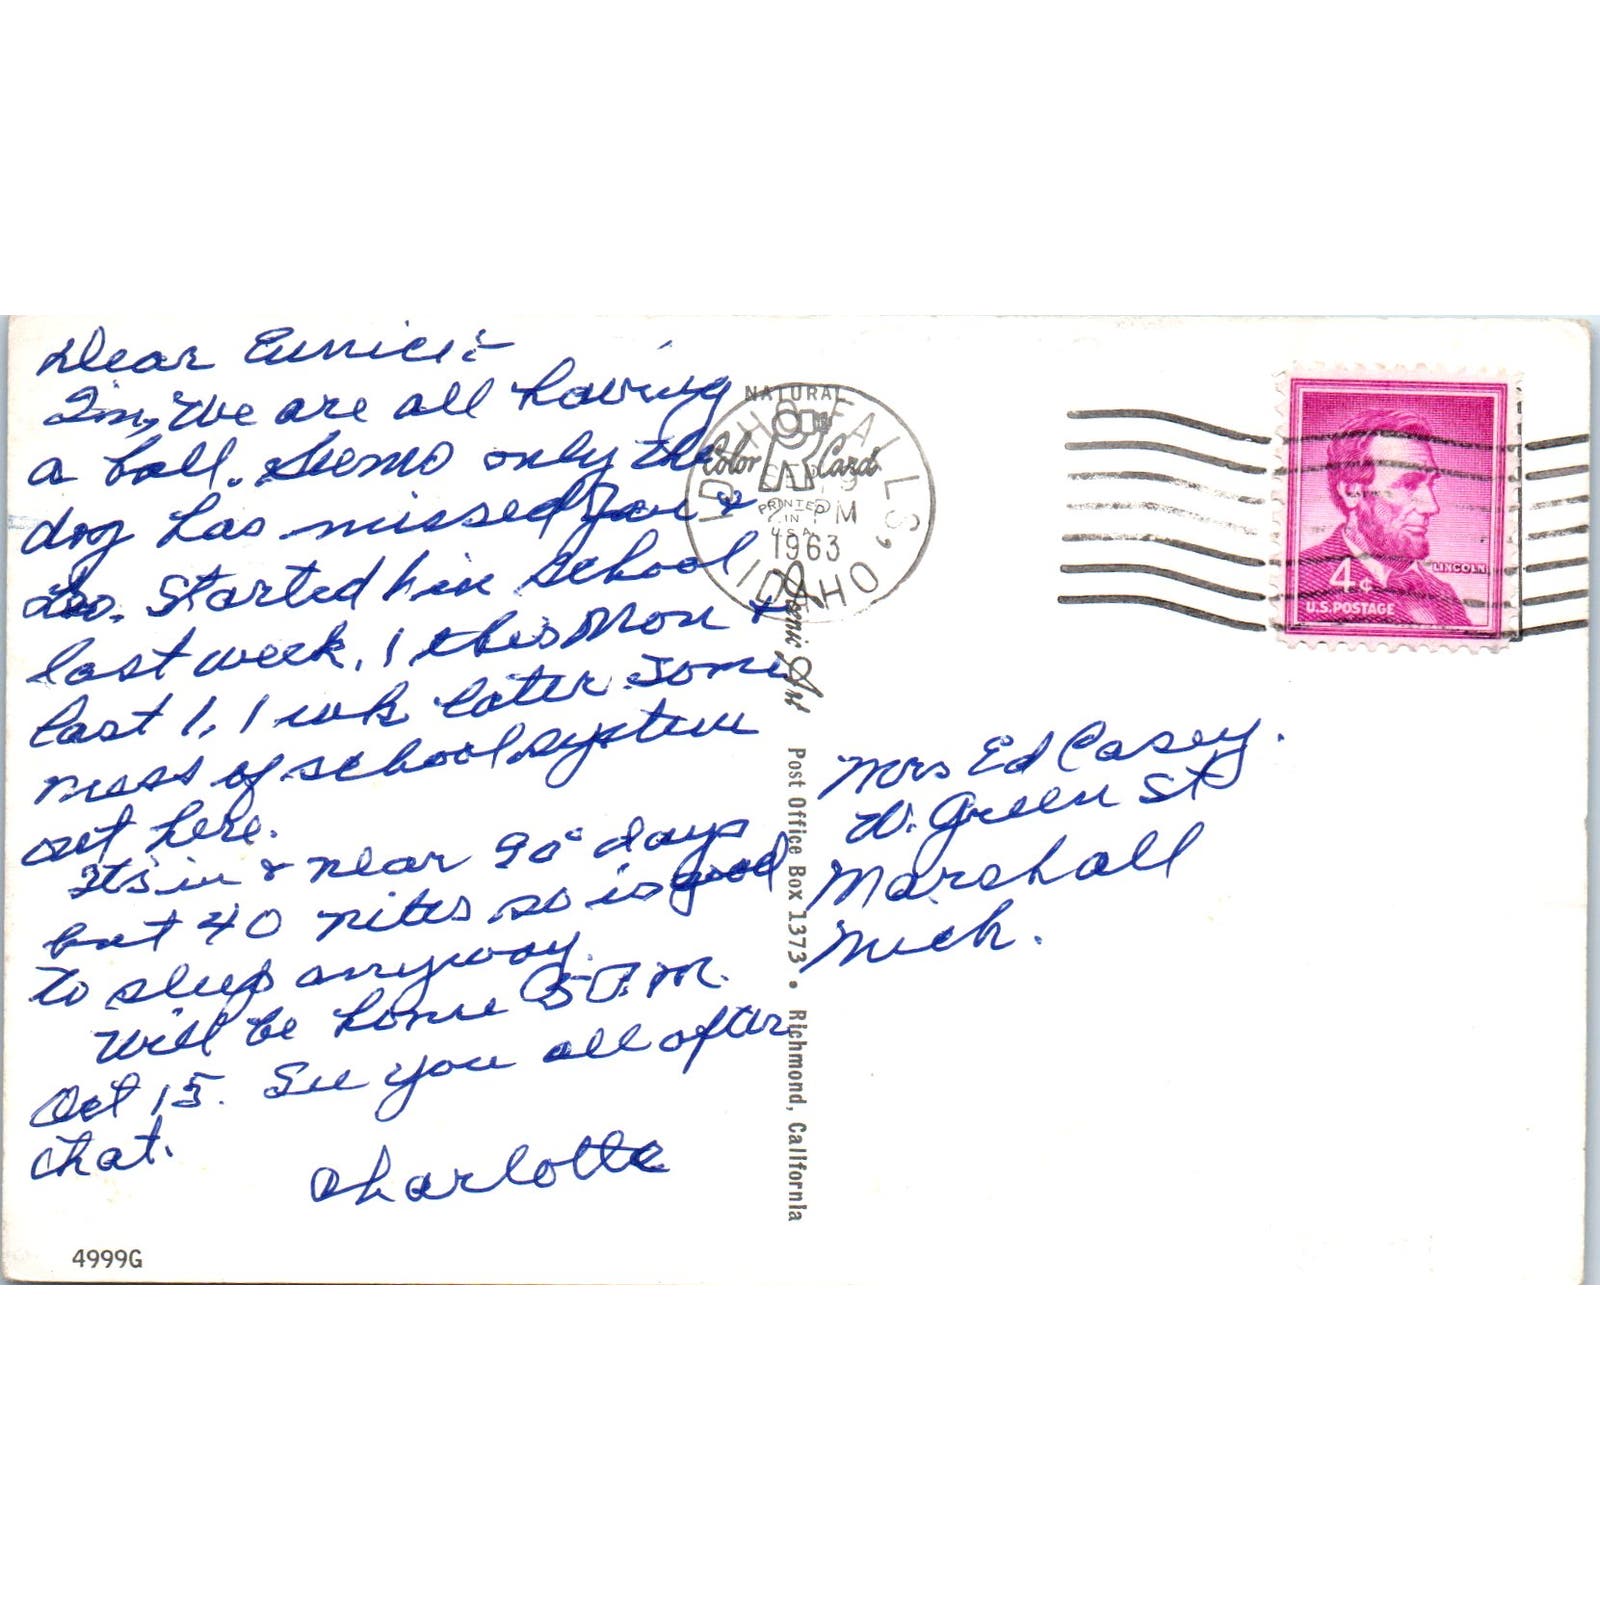 Dear Eunice:-
I'm, We are all having
a ball. Seems only the
dog has missed you &
Leo. Started 1 in School
last week, 1 this Mon &
last 1, 1 wk later some
mess of school system
out here.
It's in & near 90° days
but 40 nites so is good
to sleep anyway.
Will be home P.M.
Oct 15. See you all after
that.
Charlotte
4999G
NATURAL
Color Card
PRINTED
IN
U.S.A.
IDAHO FALLS, IDAHO
PM
1963
Scenic Art
Post Office Box 1373 • Richmond, California
LINCOLN
4¢
U.S. POSTAGE
Mrs Ed Casey.
W. Green St
Marshall
Mich.